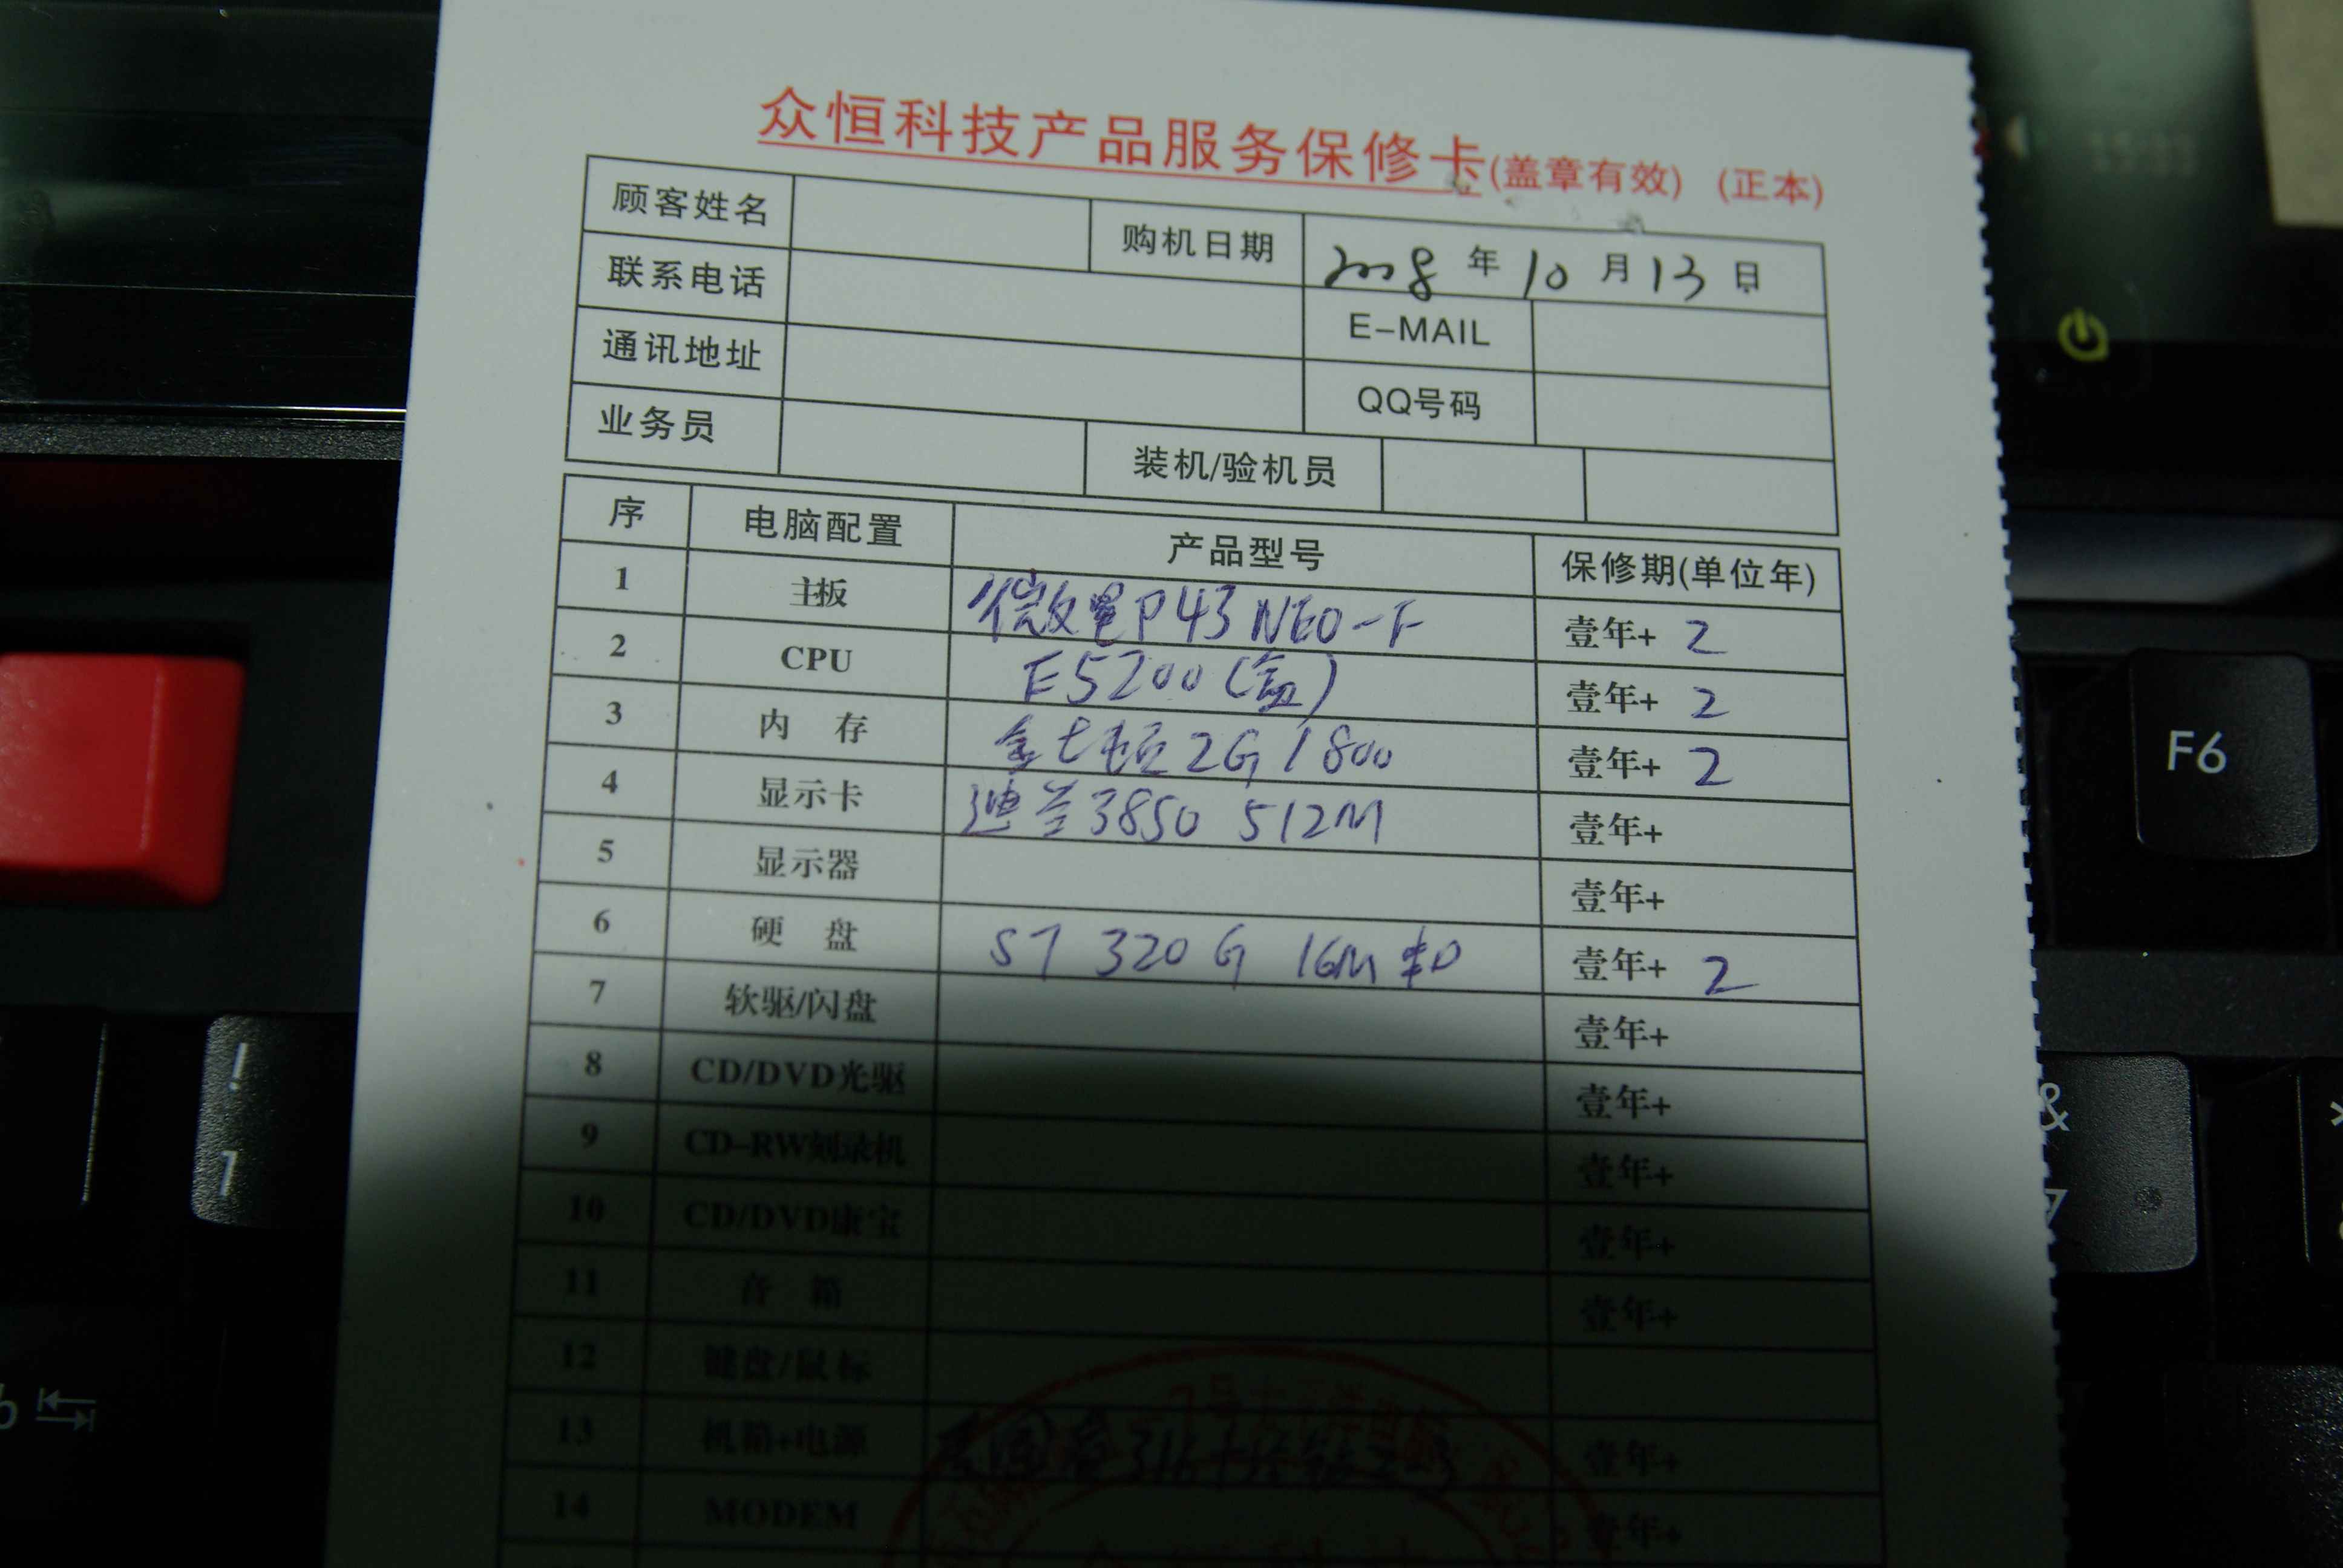 众恒科技产品服务保修卡(盖章有效) (正本)
顾客姓名 购机日期 2008 年 10 月 13 日
联系电话 E-MAIL
通讯地址 QQ号码
业务员 装机/验机员
序 电脑配置 产品型号 保修期(单位年)
1 主板 微星P43 NEO-F 壹年+ 2
2 CPU E5200(盒) 壹年+ 2
3 内存 金士顿 2G / 800 壹年+ 2
4 显示卡 迪兰3850 512M 壹年+
5 显示器 壹年+
6 硬盘 ST 320G 16M 串口 壹年+ 2
7 软驱/闪盘 壹年+
8 CD/DVD光驱 壹年+
9 CD-RW刻录机 壹年+
10 CD/DVD康宝 壹年+
11 音箱 壹年+
12 键盘/鼠标
13 机箱+电源 壹年+
14 MODEM 壹年+
F6
!
1
&
7
6